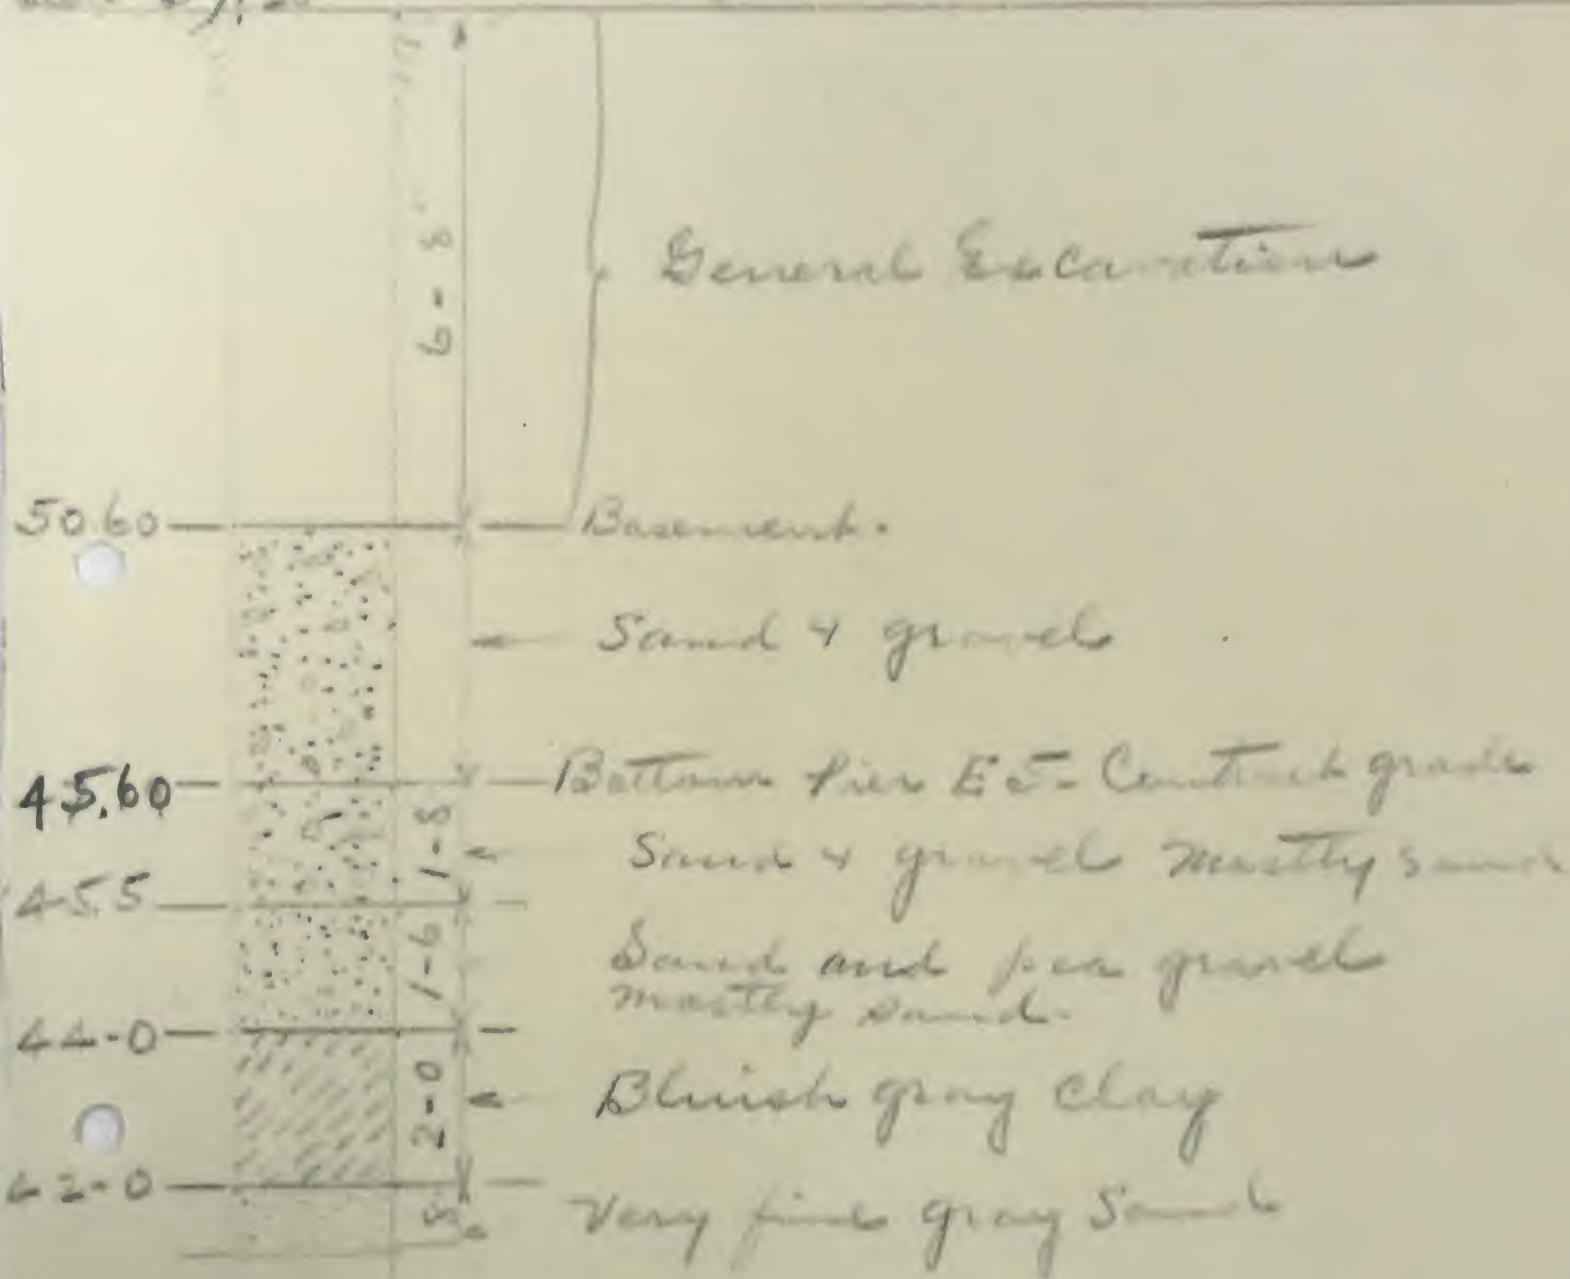 6-8
General Excavation
50.60
Basement.
Sand & gravel
45.60
Bottom Pier E5- Contract grade
1-8
Sand & gravel mostly sand
45.5
1-6
Sand and pea gravel
mostly sand.
44-0
2-0
Bluish gray Clay
42-0
Very fine gray Sand